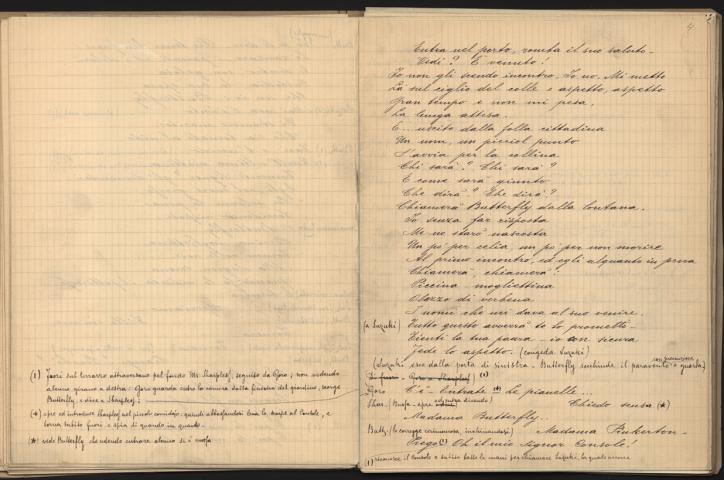 (1) Fuori sul terrazzo attraversano pel fondo Mr. Sharpless, seguito da Goro; non vedendo
alcuno girano a destra. Goro guarda entro la camera dalla finestra del giardino, scorge
Butterfly e dice a Sharpless:
apre ed introduce Sharpless nel piccolo quindi
torna subito fuori e spia di quando in quando.
vede Butterfly che udendo entrare alcuno si è
4
Entra nel porto, romba il suo saluto.
Vedi? È venuto!
Io non gli scendo incontro. Io no. Mi metto
Là sul ciglio del colle e aspetto, aspetto
Gran tempo e non mi pesa,
La lunga attesa.
E... uscito dalla folla cittadina
Un uom, un picciol punto
S'avvia per la collina
Chi sarà? Chi sarà?
E come sarà giunto
Che dirà? Che dirà?
Chiamerà Butterfly dalla lontana.
Io senza far risposta
Me ne starò nascosta
Un po' per celia, un po' per non morire
Al primo incontro, ed egli alquanto in pena
Chiamerà, chiamerà:
Piccina mogliettina
Olezzo di verbena
I nomi che mi dava al suo venire.
(a Suzuki) Tutto questo avverrà te lo prometto.
Tienti la tua paura - io con sicura
Fede lo aspetto. (congeda Suzuki)
(Suzuki esce dalla porta di sinistra. Butterfly socchiude il paravento e guarda)
Di fuori - Goro e Sharpless (1)
Goro C'è - Entrate Le pianelle...
Shar. Chiedo scusa (*)
Madama Butterfly..
Butt. inchinandosi) Madama Pinkerton -
Prego Oh il mio signor Console!
(1) riconosce il Console e subito batte le mani per chiamare Suzuki, la quale accorre